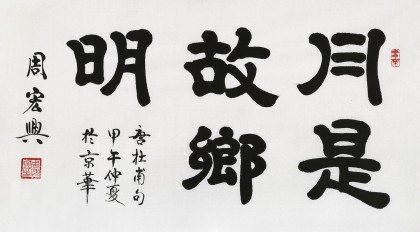 月是
故鄉
明
唐杜甫句
甲午仲夏
於京華
周宏興